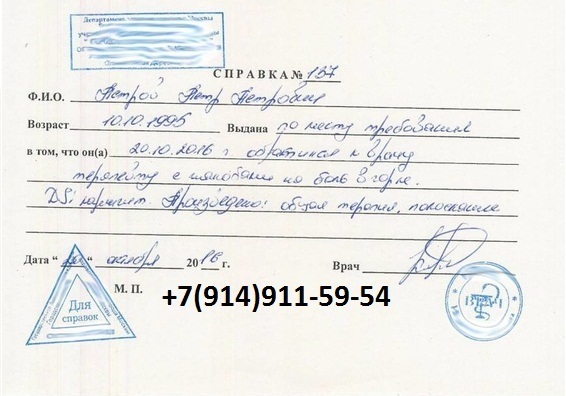 Департамент
СПРАВКА № 137
Ф.И.О. Петров Петр Петрович
Возраст 10.10.1995 Выдана по месту требования
в том, что он(а) 20.10.2016 г обратился к врачу
терапевту с жалобами на боль в горле.
DS: Произведено: общая терапия, полоскание
Дата " " октября 2016 г. Врач
М. П.
+7(914)911-59-54
Для
справок